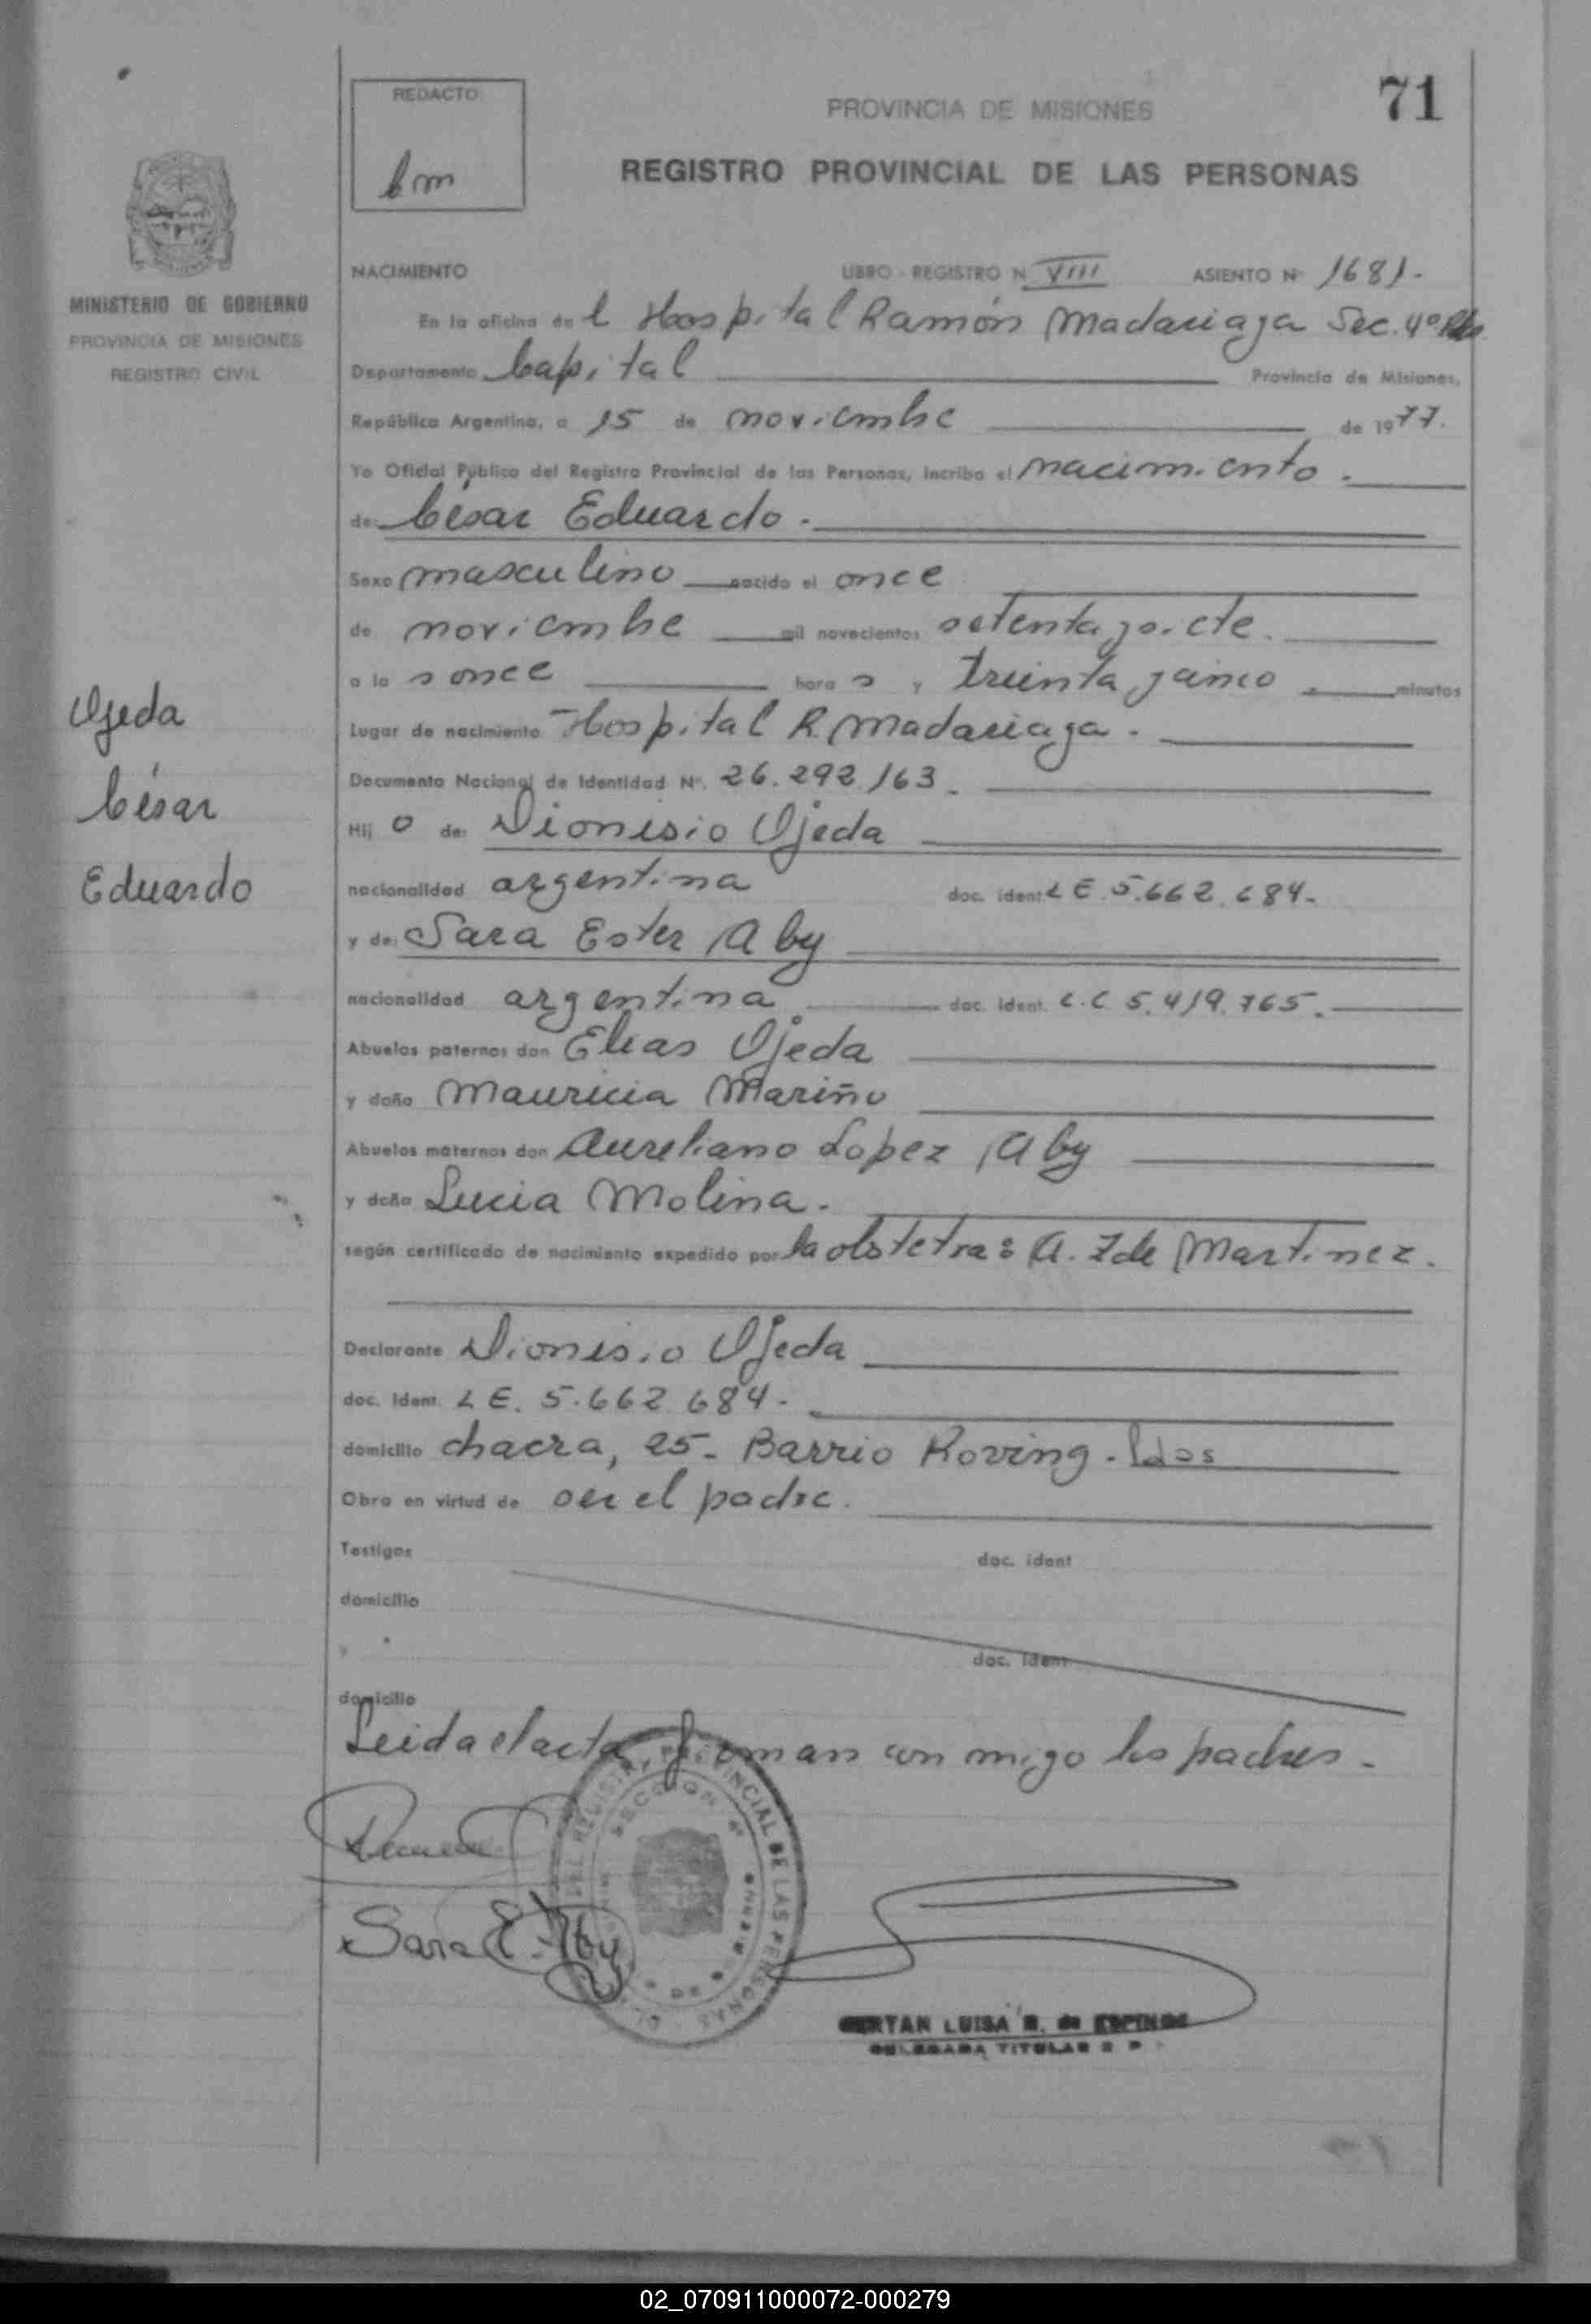 71
REDACTO
bm
PROVINCIA DE MISIONES
REGISTRO PROVINCIAL DE LAS PERSONAS
MINISTERIO DE GOBIERNO
PROVINCIA DE MISIONES
REGISTRO CIVIL
NACIMIENTO LIBRO - REGISTRO N VIII ASIENTO Nº 1681.-
En la oficina de l Hospital Ramón Madariaga Sec. 4º Pdas
Departamento Capital Provincia de Misiones,
República Argentina, a 15 de noviembre de 1977.
Yo Oficial Público del Registro Provincial de las Personas, incribo el nacimiento.
de: César Eduardo.-
Sexo masculino nacido el once
de noviembre mil novecientos setenta y siete.
a la s once hora s y treinta y cinco minutos
Lugar de nacimiento Hospital R. Madariaga.
Documento Nacional de Identidad Nº. 26.292.163.
Hij o de: Dionisio Ojeda
nacionalidad argentina doc. ident LE. 5.662.684.-
y de: Sara Ester Aby
nacionalidad argentina doc. ident. L.C 5.419.765.
Abuelos paternos don Elias Ojeda
y doña Mauricia Mariño
Abuelos maternos don Aureliano Lopez Aby
y doña Lucia Molina.
según certificado de nacimiento expedido por la obstetra: A. Z de Martinez.
Declarante Dionisio Ojeda
doc. ident. L E. 5.662.684.-
domicilio chacra, 25- Barrio Roving - Pdas
Obra en virtud de ser el padre.
Testigos doc. ident
domicilio
y doc. ident
domicilio
Leida el acta firman con migo los padres.-
Ojeda
César
Eduardo
Sara E. Aby
REGISTRO PROVINCIAL DE LAS PERSONAS
SECCION 4ª
LUISA R. de ESPINOSA
DELEGADA TITULAR R P
02_070911000072-000279